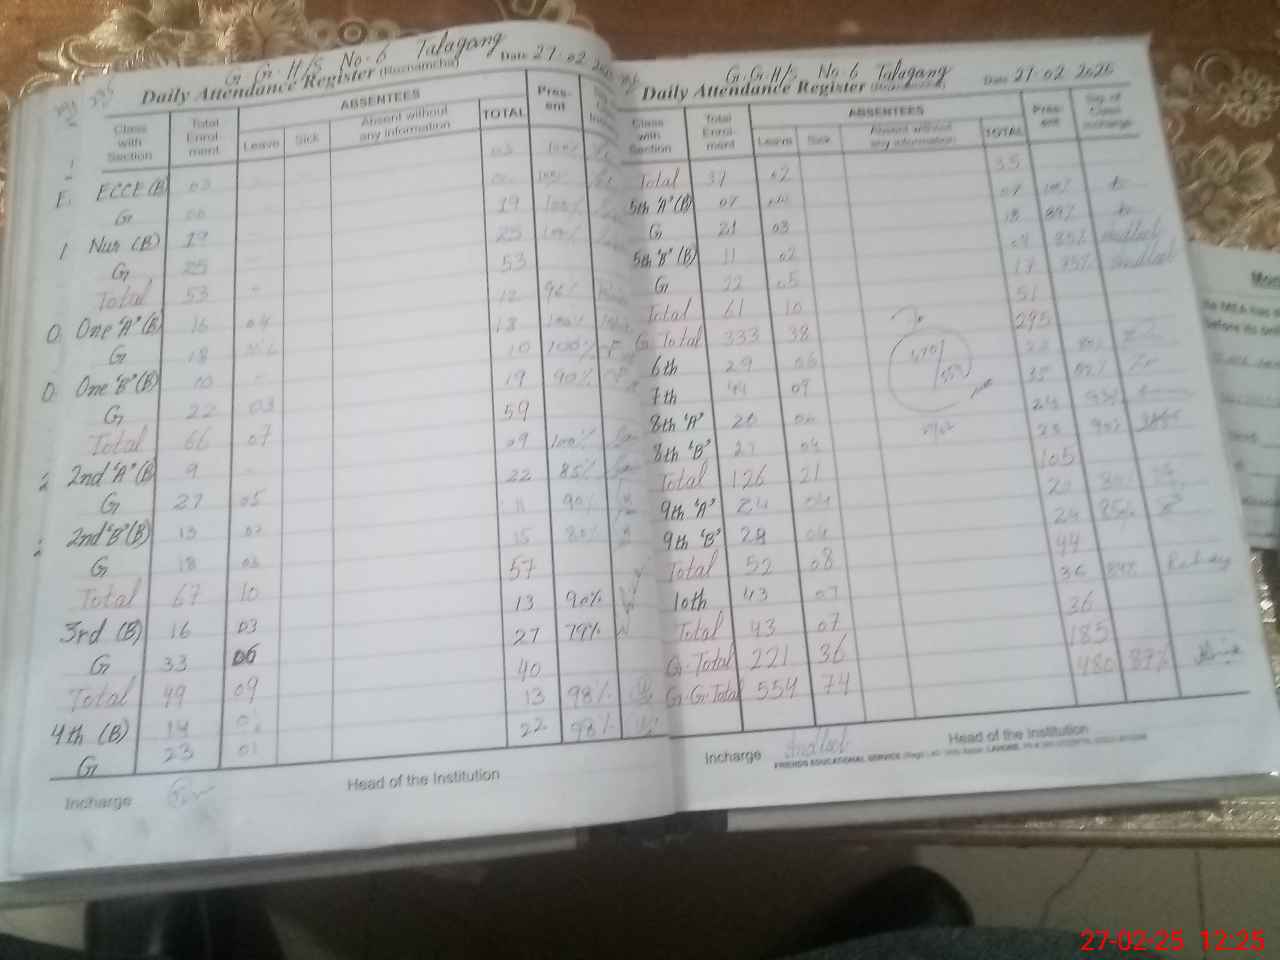 G.G.H/S No-6 Talagang
Daily Attendance Register (Roznamcha) Date 27-02
Class with Section Total Enrolment ABSENTEES TOTAL Present
Leave Sick Absent without any information
ECCE (B) 03 03 100%
G 100%
Nur (B) 19 19 100%
G 25 25 100%
Total 53 53
One "A" (B) 16 04 12 96%
G 18 18 100%
One "B" (B) 10 10 100%
G 22 03 19 90%
Total 66 07 59
2nd "A" (B) 9 09 100%
G 27 05 22 85%
2nd "B" (B) 13 02 11 90%
G 18 03 15 80%
Total 67 10 57
3rd (B) 16 03 13 90%
G 33 06 27 79%
Total 49 09 40
4th (B) 14 01 13 98%
G 23 01 22 98%
Incharge Head of the Institution
G.G.H/S No-6 Talagang
Daily Attendance Register Date 27-02 2025
Class with Section Total Enrolment ABSENTEES TOTAL Present Sig. of Class Incharge
Leave Sick Absent without any information
Total 37 02 35
5th "A" (B) 07 07 100%
G 21 03 18 89%
5th "B" (B) 11 02 09 85%
G 22 05 17 75%
Total 61 10 51
G. Total 333 38 295
6th 29 06
7th 44 09 35
8th "A" 24
8th "B" 27 04 23 90%
Total 126 21 105
9th "A" 24 04 20 80%
9th "B" 28 04 24 85%
Total 52 08 44
10th 43 07 36 84%
Total 43 07 36
G. Total 221 36 185
G.G. Total 554 74 480 87%
Incharge Head of the Institution
FRIENDS EDUCATIONAL SERVICE
27-02-25 12:25